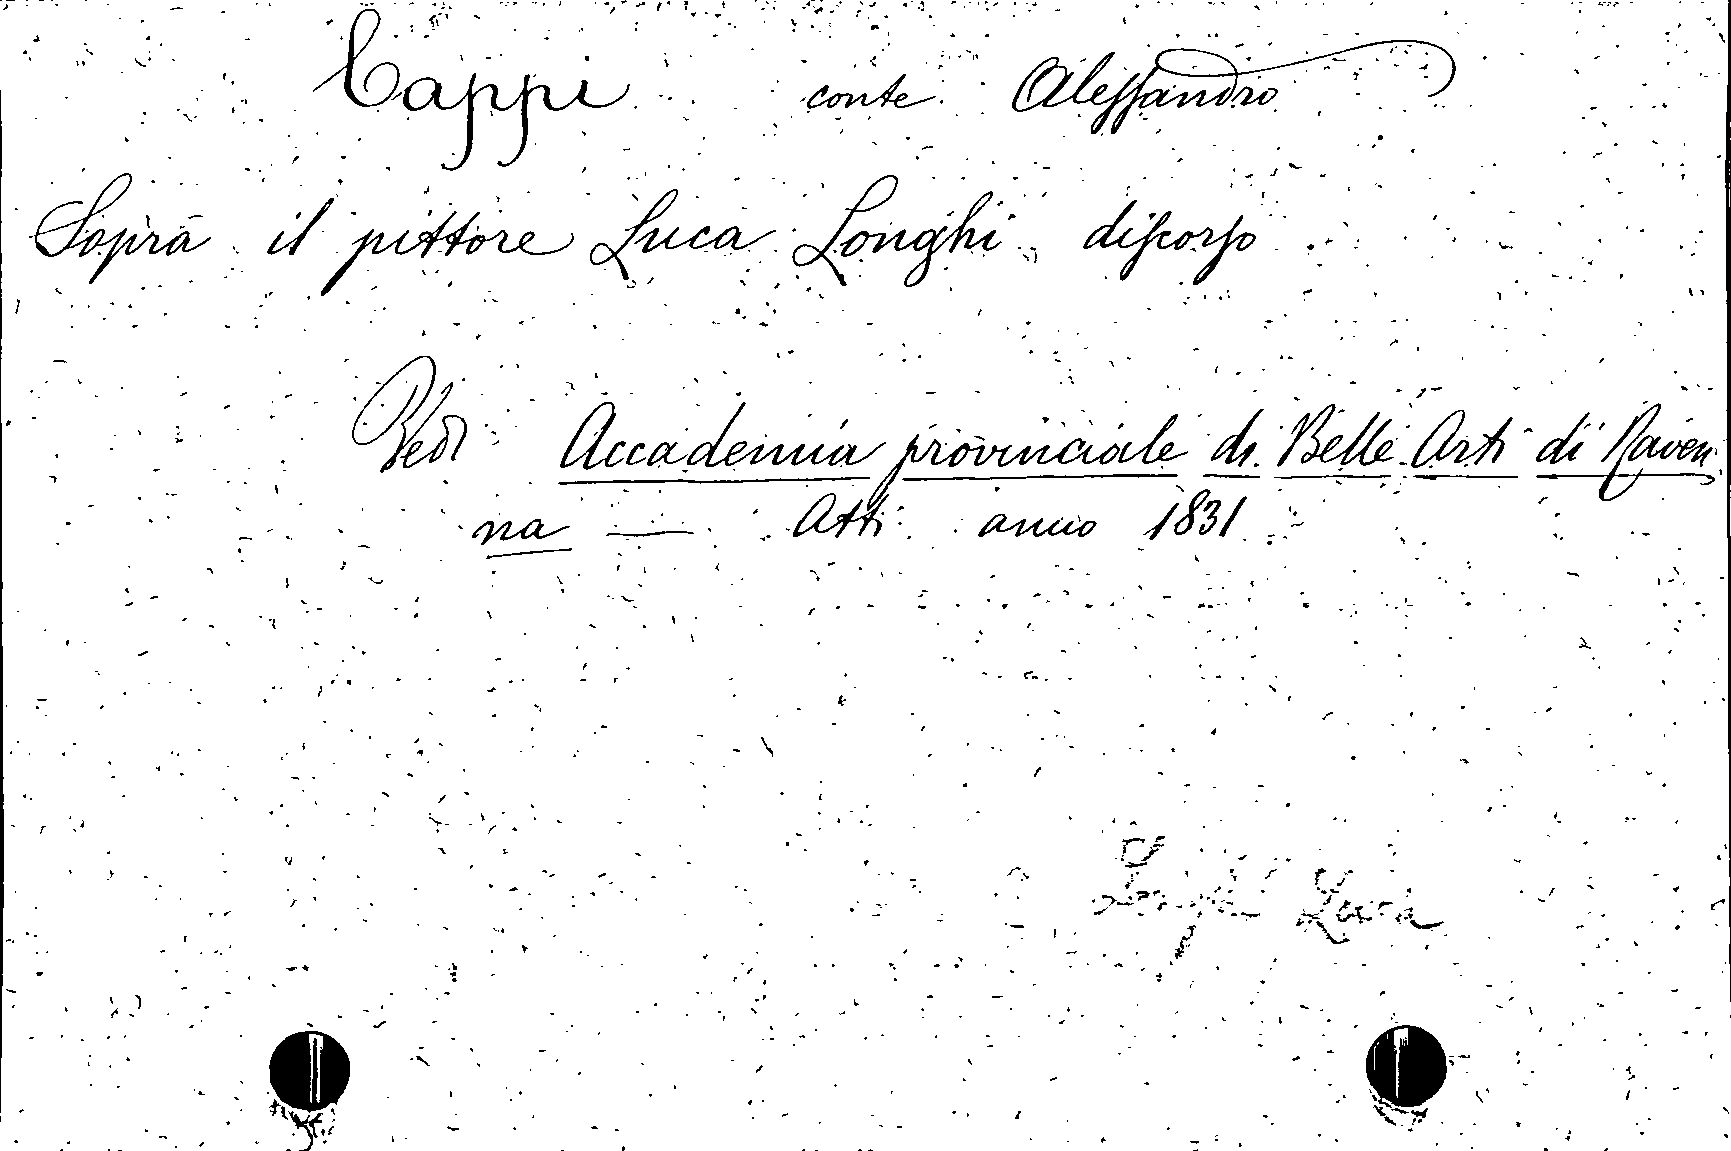 Cappi conte Alessandro
Sopra il pittore Luca Longhi discorso
Vedi Accademia provinciale di Belle Arti di Raven
na — Atti anno 1831
Longhi Luca